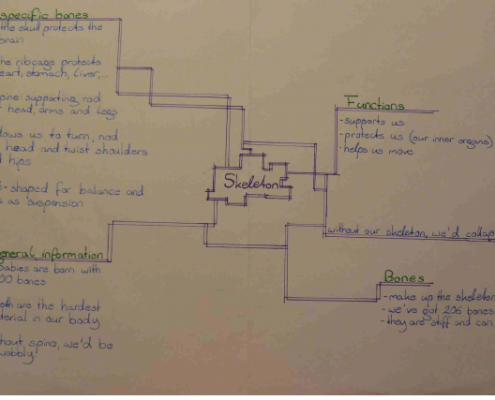 specific bones
the skull protects the
brain
the ribcage protects
heart, stomach, liver,...
spine: supporting rod
head, arms and legs
allows us to turn, nod
head and twist shoulders
hips
-shaped for balance and
as suspension
Skeleton
Functions
- supports us
- protects us (our inner organs)
- helps us move
without our skeleton, we'd collap
general information
Babies are born with
00 bones
are the hardest
material in our body
without spine, we'd be
wobbly!
Bones
- make up the skeleton
- we've got 206 bones
- they are stiff and can